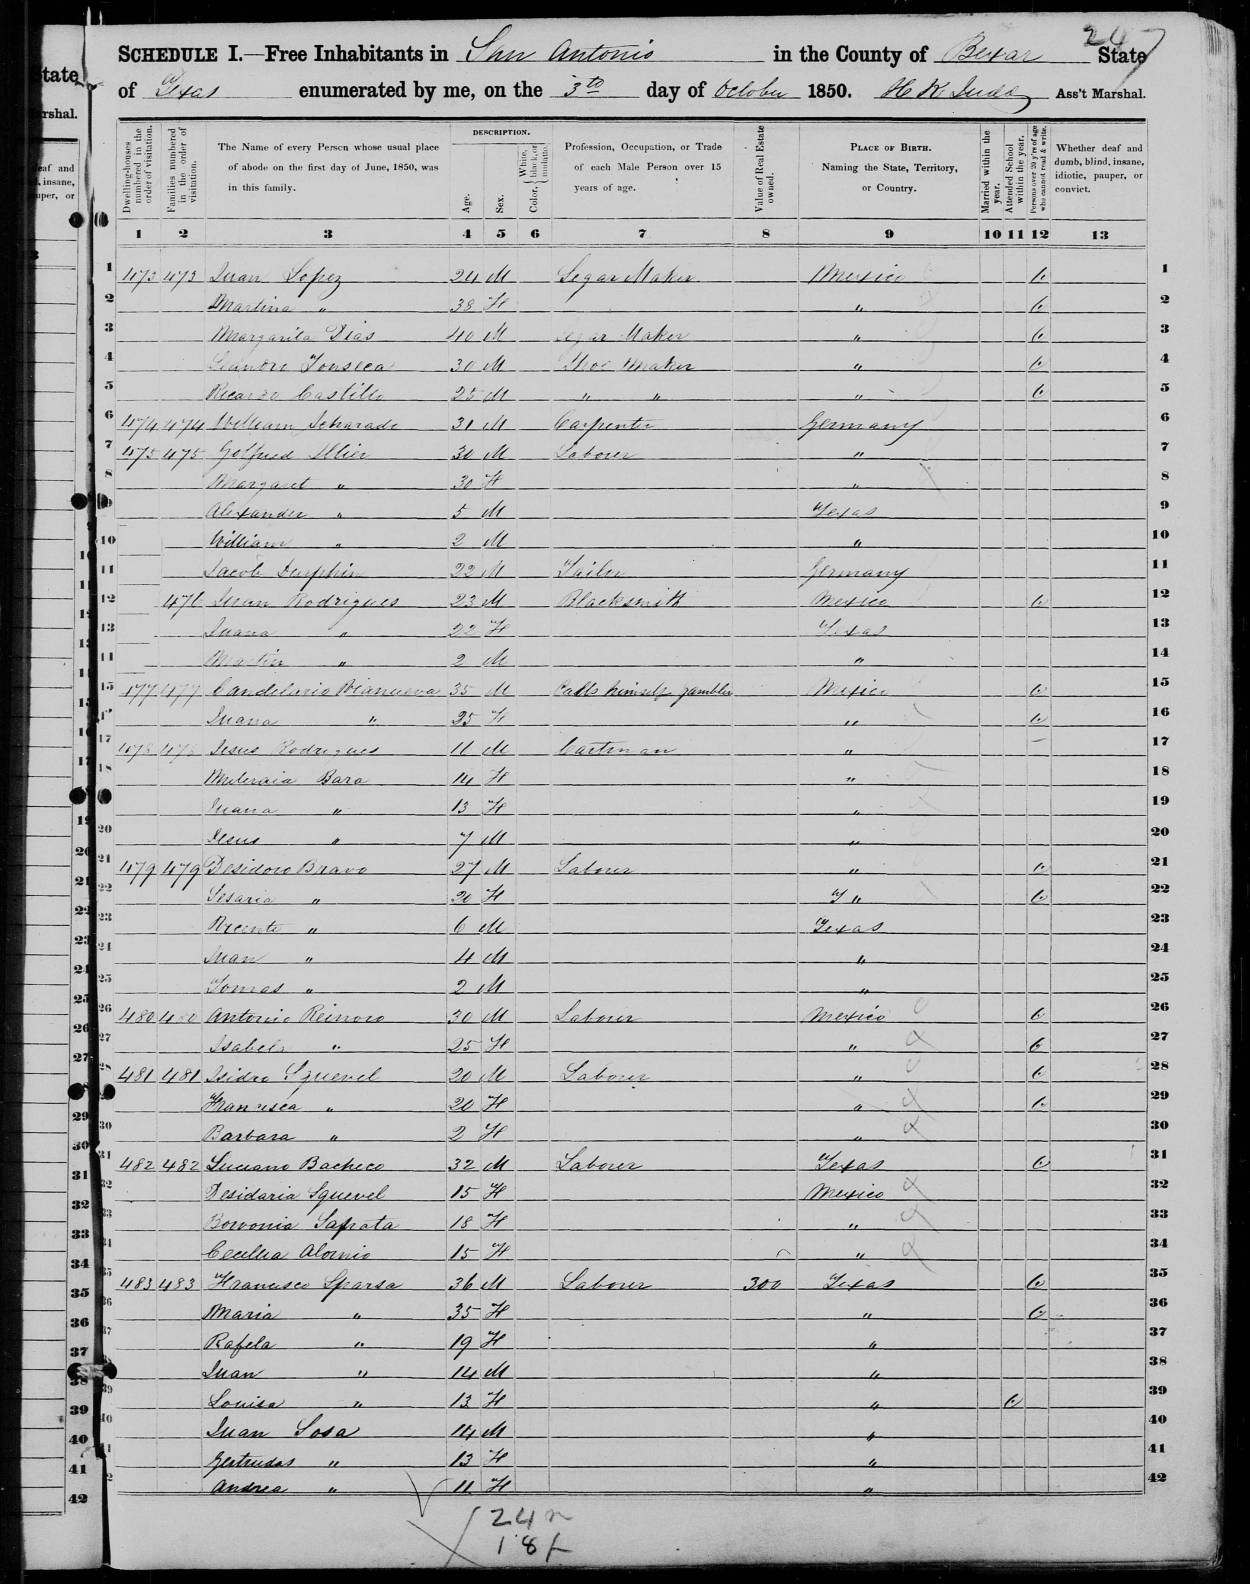 247
SCHEDULE I.—Free Inhabitants in San Antonio in the County of Bexar State
of Texas enumerated by me, on the 3th day of October 1850. H K Judd Ass't Marshal.
Dwelling-houses numbered in the order of visitation.
Families numbered in the order of visitation.
The Name of every Person whose usual place of abode on the first day of June, 1850, was in this family.
DESCRIPTION.
Age.
Sex.
Color, { White, black, or mulatto.
Profession, Occupation, or Trade of each Male Person over 15 years of age.
Value of Real Estate owned.
PLACE OF BIRTH. Naming the State, Territory, or Country.
Married within the year.
Attended School within the year.
Persons over 20 y'rs of age who cannot read & write.
Whether deaf and dumb, blind, insane, idiotic, pauper, or convict.
1 2 3 4 5 6 7 8 9 10 11 12 13
1 473 473 Juan Lopez 24 M Segar Maker Mexico 1
2 Martina " 38 F " 2
3 Margarita Dias 40 M Segar Maker " 3
4 Leandro Fonseca 30 M Shoe Maker " 4
5 Ricardo Castillo 25 M " " " 5
6 474 474 William Scharade 31 M Carpenter Germany 6
7 475 475 Gotfried 30 M Laborer " 7
8 Margaret " 30 F " 8
9 Alexander " 5 M Texas 9
10 William " 2 M " 10
11 Jacob Durphin 22 M Tailer Germany 11
12 476 Juan Rodrigues 23 M Blacksmith Mexico 12
13 Juana " 22 F Texas 13
14 Martin " 2 M " 14
15 477 477 Candelario Bianueva 35 M Calls himself gambler Mexico 15
16 Juana " 25 F " 16
17 478 478 Jesus Rodrigues 11 M Cartman " 17
18 Bara 14 F " 18
19 Juana " 13 F " 19
20 Jesus " 7 M " 20
21 479 479 Desidoro Bravo 27 M Laborer " 21
22 Sesaria " 20 F T " 22
23 Vicente " 6 M Texas 23
24 Juan " 4 M " 24
25 Tomas " 2 M " 25
26 480 480 Antonio Reinoro 30 M Laborer Mexico 26
27 Isabel " 25 F " 27
28 481 481 Isidro Squevel 20 M Laborer " 28
29 Francisca " 20 F " 29
30 Barbara " 2 F " 30
31 482 482 Luciano Bacheco 32 M Laborer Texas 31
32 Desidaria Squevel 15 F Mexico 32
33 Bovonia Sapata 18 F " 33
34 Cecillia Alornio 15 F " 34
35 483 483 Francisco Sparsa 36 M Laborer 300 Texas 35
36 Maria " 35 F " 36
37 Rafela " 19 F " 37
38 Juan " 14 M " 38
39 Louisa " 13 F " 39
40 Juan Sosa 14 M " 40
41 Gertrudas " 13 F " 41
42 Andrea " 11 F " 42
24 m
18 f